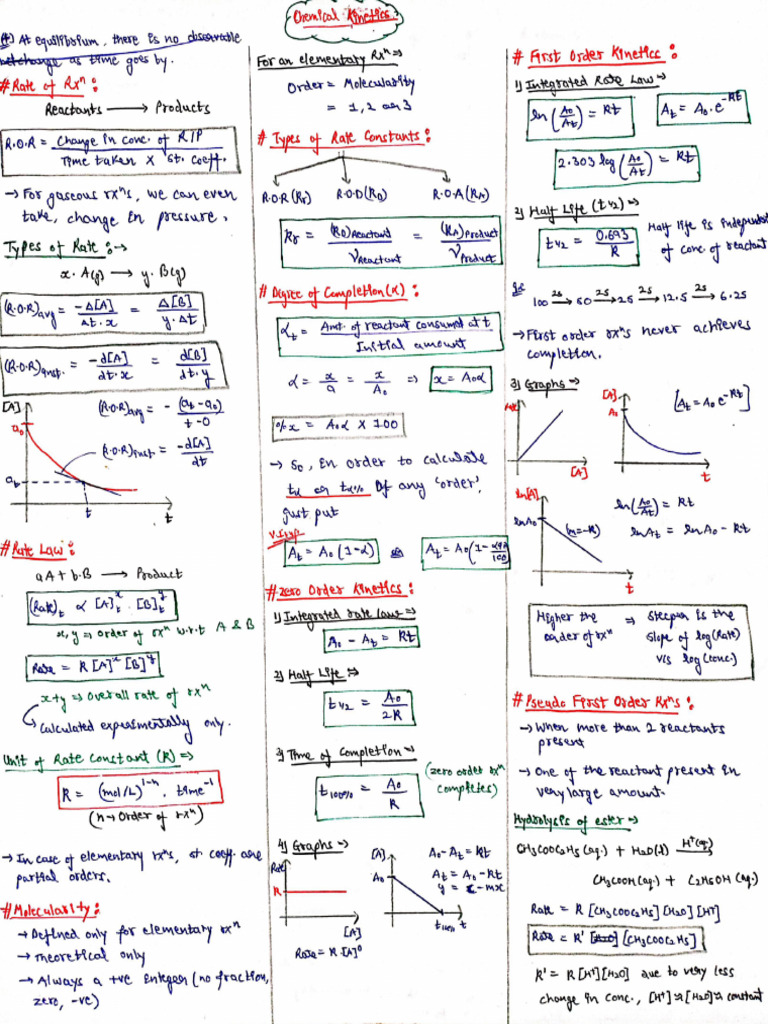 Chemical Kinetics
(*) At equilibrium, there is no observable
net change as time goes by.
# Rate of Rxⁿ:
Reactants ⟶ Products
R.O.R = Change in conc. of R/P / Time taken x st. coeff.
→ For gaseous rxⁿs, we can even
take, change in pressure.
Types of Rate:→
x. A(g) ⟶ y. B(g)
(R.O.R)avg = -Δ[A] / Δt.x = Δ[B] / y.Δt
(R.O.R)inst. = -d[A] / dt.x = d[B] / dt.y
[A]
a₀
aₜ
t
t
(R.O.R)avg = - (aₜ-a₀) / t-0
(R.O.R)inst = -d[A] / dt
# Rate Law:
aA + b.B ⟶ Product
(Rate)ₜ ∝ [A]ₜˣ . [B]ₜʸ
x, y ⇒ order of rxⁿ w.r.t A & B
Rate = R [A]ˣ [B]ʸ
x+y ⇒ overall rate of rxⁿ
Calculated experimentally only.
Unit of Rate Constant (R) ⇒
R = (mol/L)¹⁻ⁿ . time⁻¹
(n → Order of rxⁿ)
→ In case of elementary rxⁿs, st coeff. are
partial orders.
# Molecularity:
→ Defined only for elementary rxⁿ
→ Theoretical only
→ Always a +ve integer (no fraction,
zero, -ve)
For an elementary Rxⁿ ⇒
Order = Molecularity
= 1, 2 or 3
# Types of Rate Constants:
R.O.R (Rr) R.O.D (RD) R.O.A (RA)
Rr = (RD)Reactant / νReactant = (RA)Product / νProduct
# Degree of Completion (α):
αₜ = Amt. of reactant consumed at t / Initial amount
α = x/a = x/A₀ ⇒ x = A₀α
%x = A₀α x 100
→ So, in order to calculate
tα or tα% of any 'order',
just put
V.Imp
Aₜ = A₀(1-α) or Aₜ = A₀(1- α%/100)
# Zero Order Kinetics:
1) Integrated rate law →
A₀ - Aₜ = Rt
2) Half Life →
t1/2 = A₀ / 2R
3) Time of Completion →
t100% = A₀ / R
(zero order rxⁿ
completes)
4) Graphs →
Rate
R
[A]
Rate = R [A]⁰
[A]
A₀
t100% t
A₀ - Aₜ = Rt
Aₜ = A₀ - Rt
y = c - mx
# First Order Kinetics:
1) Integrated Rate Law →
ln(A₀/Aₜ) = Rt Aₜ = A₀.e⁻ᴿᵗ
2.303 log(A₀/Aₜ) = Rt
2) Half Life (t1/2) →
t1/2 = 0.693 / R
Half life is independent
of conc of reactant
100 2s→ 50 2s→ 25 2s→ 12.5 2s→ 6.25
→ First order rxⁿs never achieves
completion.
3) Graphs →
Rate
[A]
[A]
A₀
t
[Aₜ = A₀e⁻ᴿᵗ]
ln[A]
lnA₀
(m=-R)
t
ln(A₀/Aₜ) = Rt
lnAₜ = lnA₀ - Rt
Higher the order of rxⁿ ⇒ steeper is the slope of log(Rate) v/s log(conc.)
# Pseudo First Order Rxⁿs:
→ When more than 2 reactants
present
→ One of the reactant present in
very large amount.
Hydrolysis of ester →
CH₃COOC₂H₅(aq.) + H₂O(l) H⁺(aq)⟶
CH₃COOH(aq.) + C₂H₅OH (aq.)
Rate = R [CH₃COOC₂H₅] [H₂O] [H⁺]
Rate = R' [CH₃COOC₂H₅]
R' = R[H⁺][H₂O] due to very less
change in conc., [H⁺] ≈ [H₂O] ≈ constant